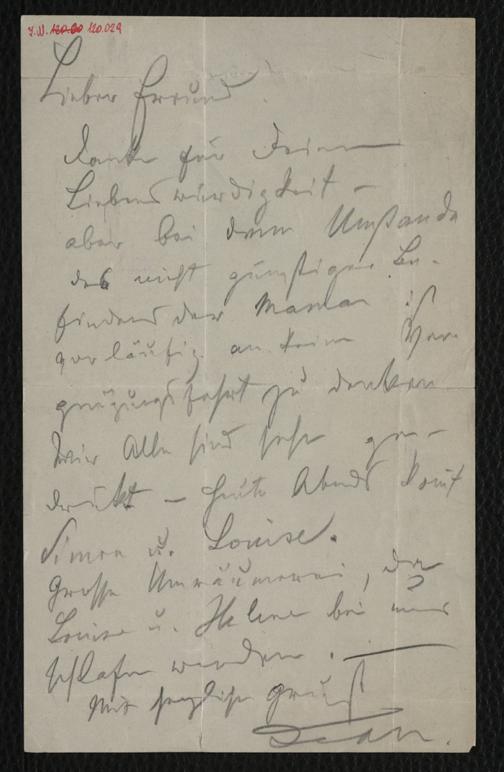 I.N. 120.029
Lieber Freund
danke für Deine
Liebenswürdigkeit –
aber bei dem Umstande
des nicht günstigen Be-
findens der Mama ist
vorläufig an keine Ver-
gnügungsfahrt zu denken
Wir Alle sind sehr ge-
drückt – heute Abends komt
Simon u. Louise.
Grosse Umräumerei, da
Louise u. Helene bei mir
schlafen werden. –
Mit herzlichem Gruß
Jean.